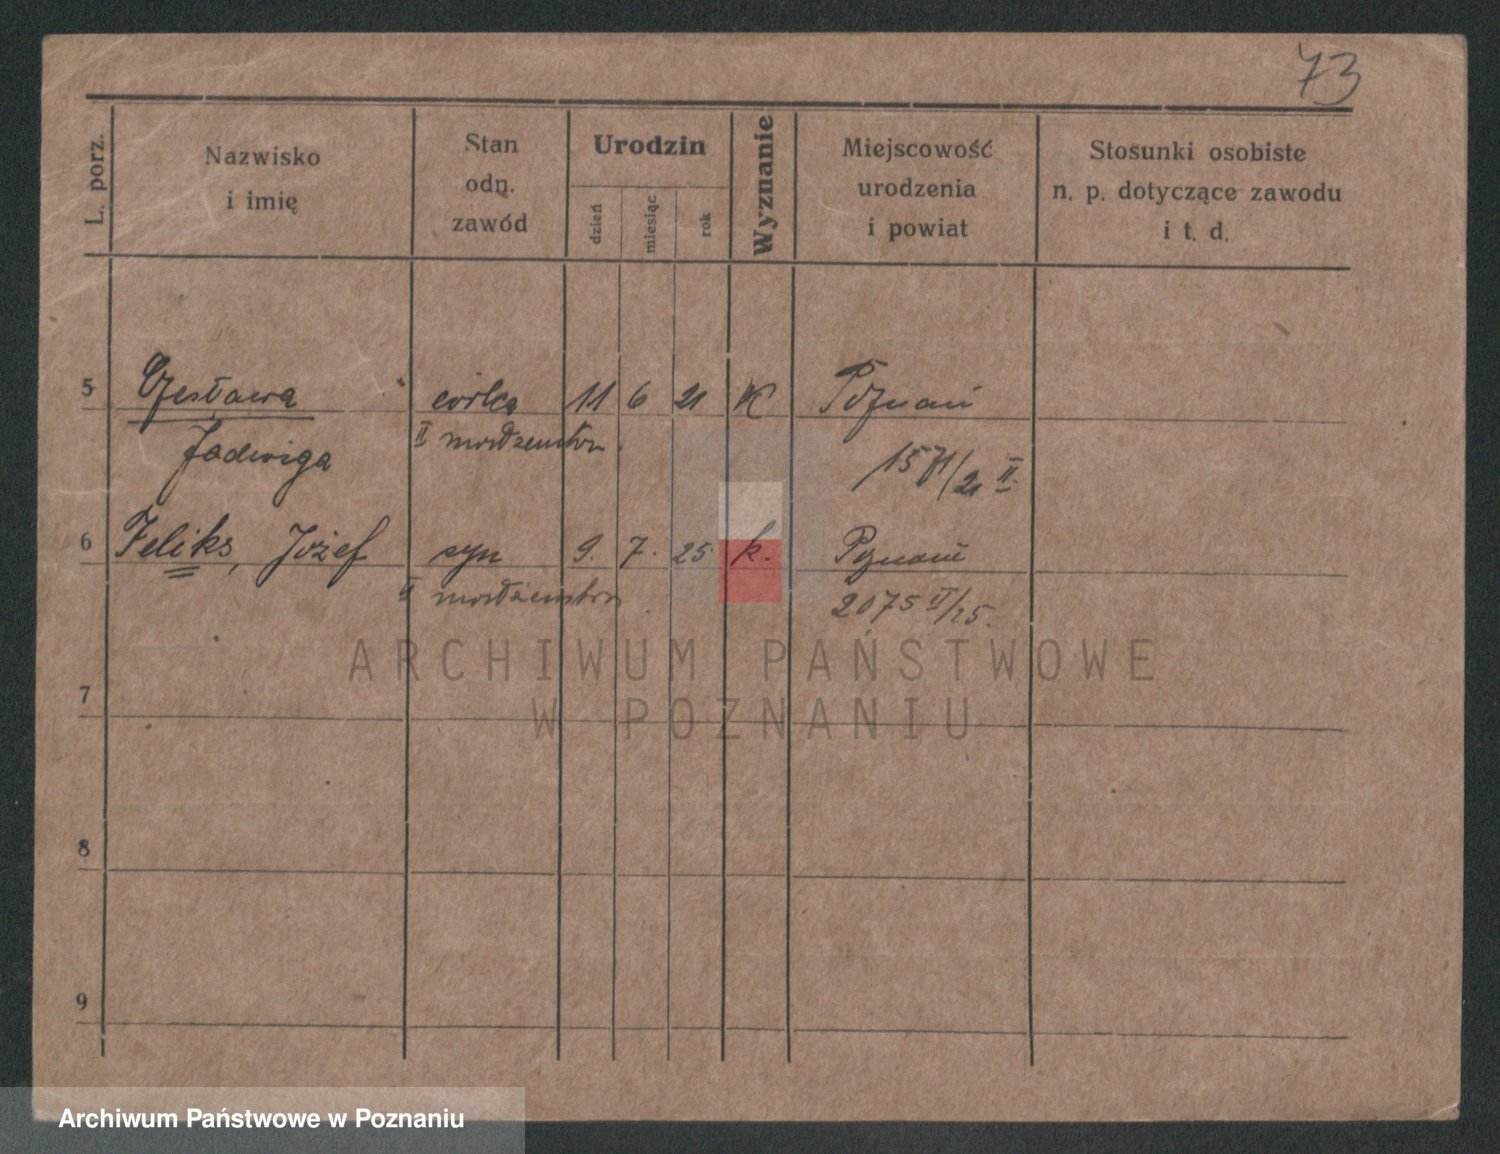 73
L. porz.
Nazwisko
i imię
Stan
odn.
zawód
Urodzin
dzień
miesiąc
rok
Wyznanie
Miejscowość
urodzenia
i powiat
Stosunki osobiste
n. p. dotyczące zawodu
i t. d.
5 Czesława córka 11 6 21 K Poznań
Jadwiga II małżeństwa 1571/21 II
6 Feliks, Józef syn 9. 7. 25 k. Poznań
II małżeństwa 2075 II/25.
ARCHIWUM PAŃSTWOWE
W POZNANIU
7
8
9
Archiwum Państwowe w Poznaniu